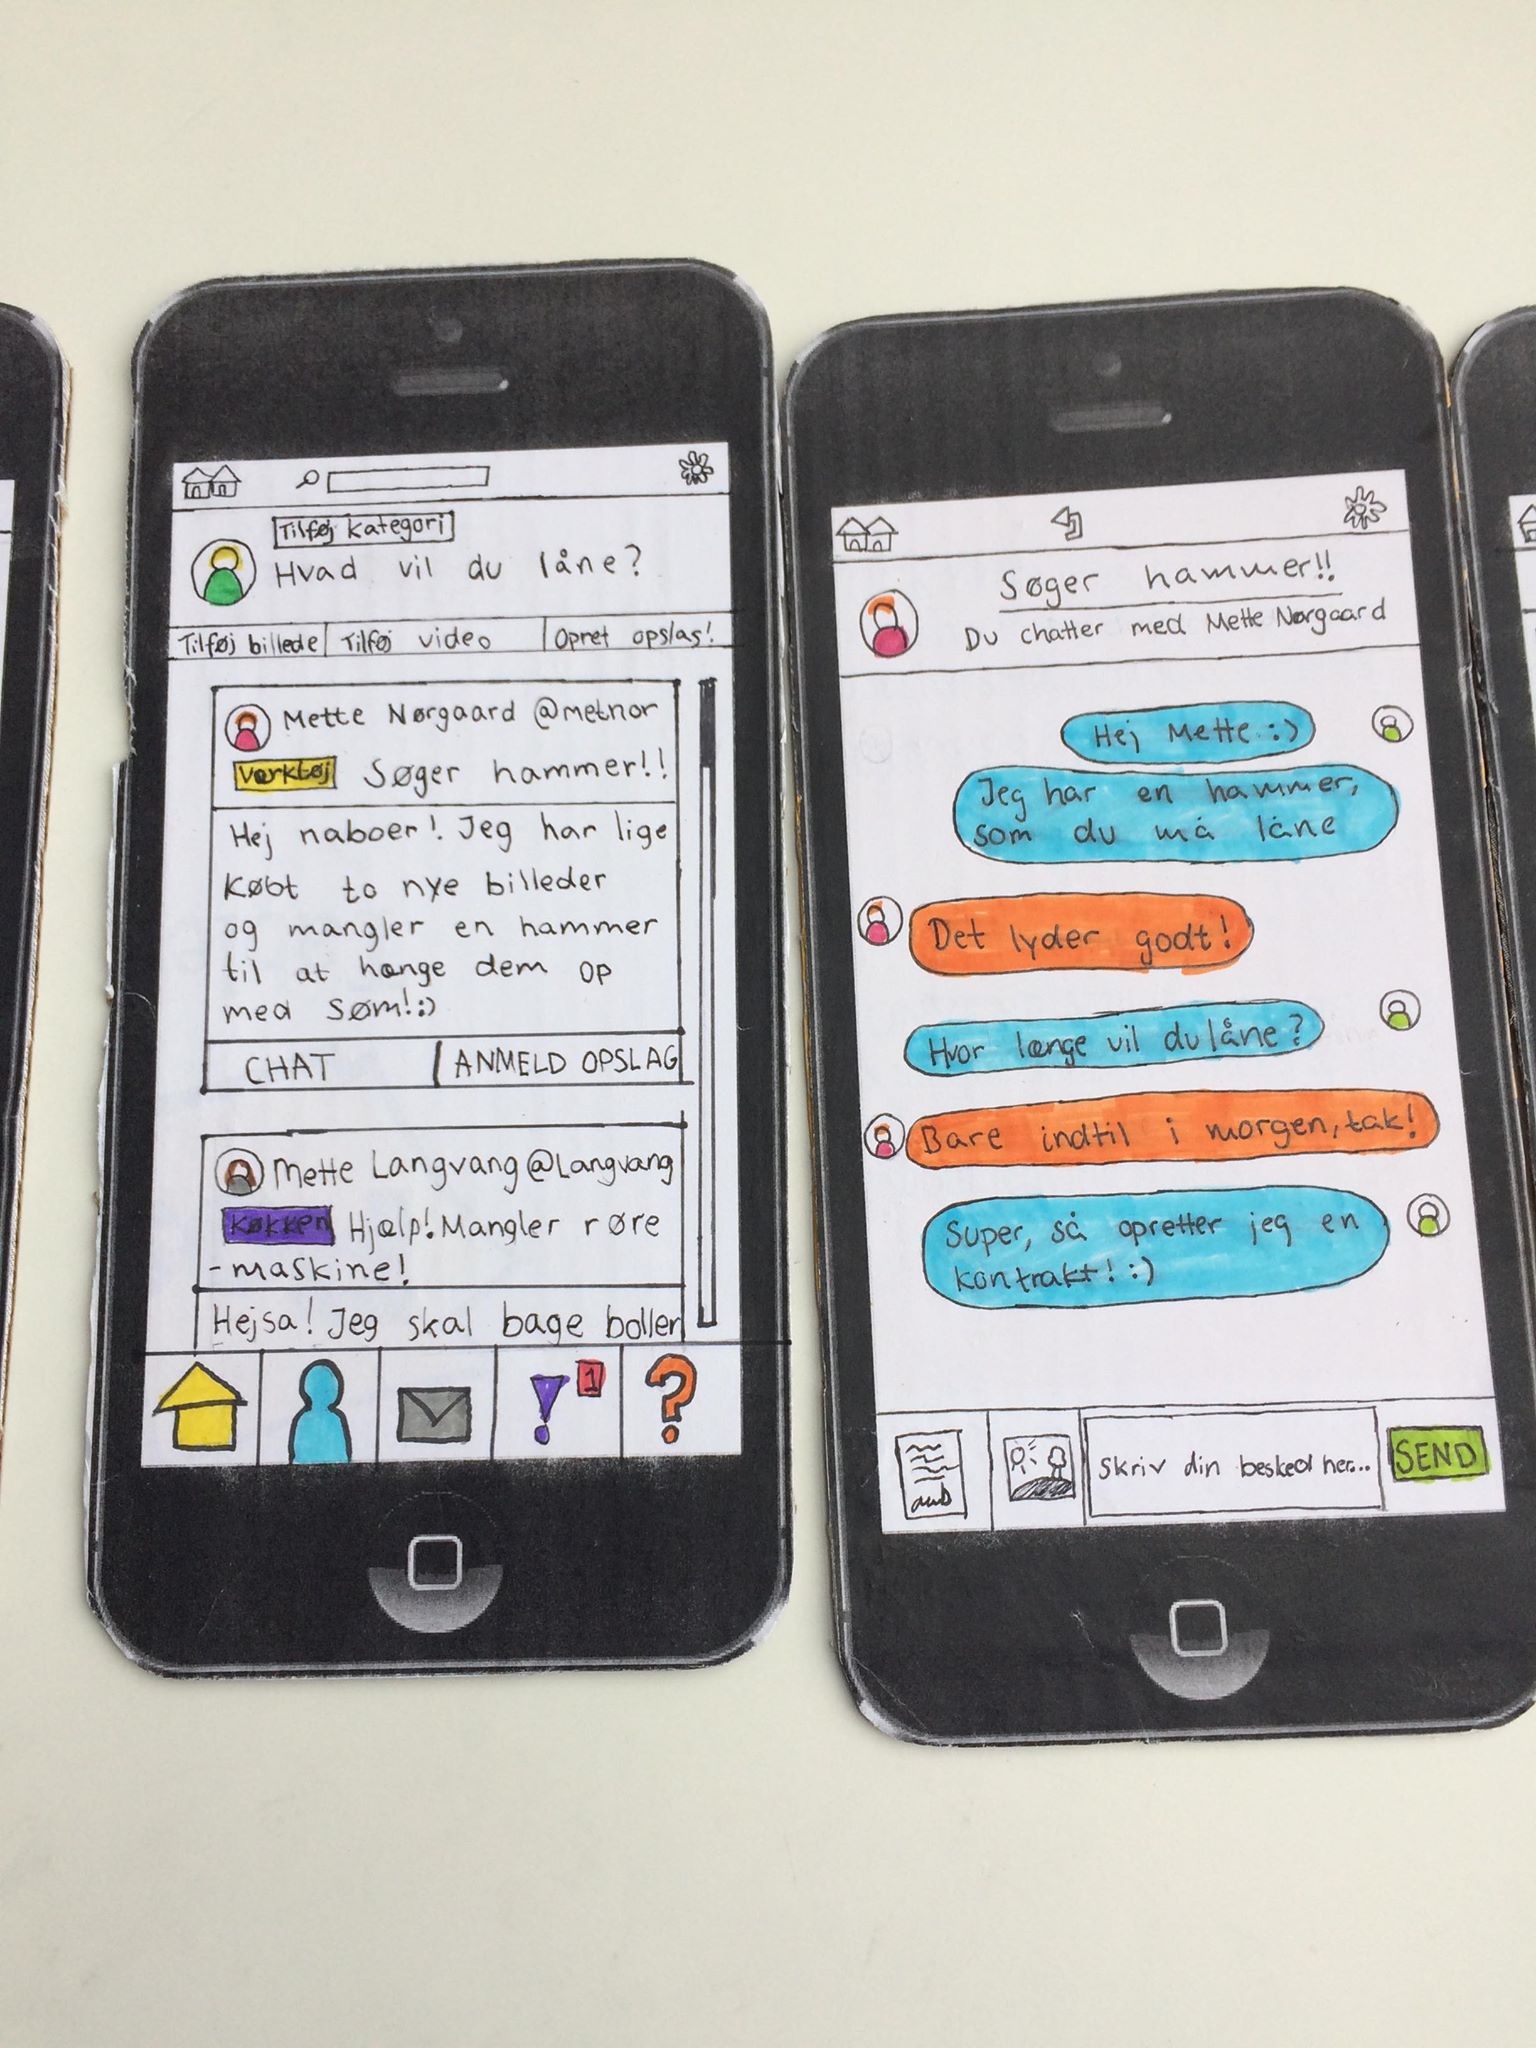 Tilføj kategori
Hvad vil du låne?
Tilføj billede
Tilføj video
Opret opslag!
Mette Nørgaard @metnor
Værktøj
Søger hammer!!
Hej naboer! Jeg har lige
købt to nye billeder
og mangler en hammer
til at hænge dem op
med søm!:)
CHAT
ANMELD OPSLAG
Mette Langvang @Langvang
Køkken
Hjælp! Mangler røre
-maskine!
Hejsa! Jeg skal bage boller
1
Søger hammer!!
Du chatter med Mette Nørgaard
Hej Mette :)
Jeg har en hammer,
som du må låne
Det lyder godt!
Hvor længe vil du låne?
Bare indtil i morgen, tak!
Super, så opretter jeg en
kontrakt! :)
Skriv din besked her...
SEND